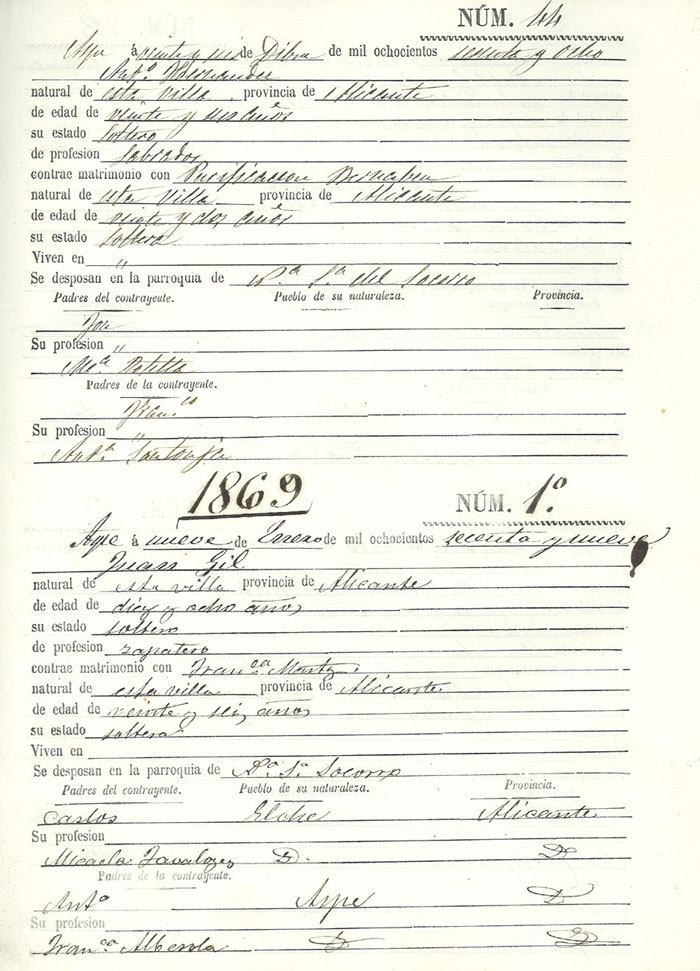 NÚM. 44
Aspe á veinte y seis de Dibre de mil ochocientos sesenta y ocho
Antº Hernandez
natural de esta villa provincia de Alicante
de edad de veinte y seis años
su estado soltero
de profesion labrador
contrae matrimonio con Purificacion
natural de esta villa provincia de Alicante
de edad de veinte y dos años
su estado soltera
Viven en "
Se desposan en la parroquia de Nª Sª del Socorro
Padres del contrayente. Pueblo de su naturaleza. Provincia.
José
Su profesion "
Mª Botella
Padres de la contrayente.
Franco
Su profesion "
Antª
1869 NÚM. 1º
Aspe á nueve de Enero de mil ochocientos secenta y nueve
Juan Gil
natural de esta villa provincia de Alicante
de edad de diez y ocho años
su estado soltero
de profesion zapatero
contrae matrimonio con Franca Martz.
natural de esta villa provincia de Alicante
de edad de veinte y seis años
su estado soltera
Viven en
Se desposan en la parroquia de Nª Sª Socorro
Padres del contrayente. Pueblo de su naturaleza. Provincia.
Carlos Elche Alicante
Su profesion
Micaela D. D
Padres de la contrayente.
Antº Aspe D
Su profesion
Franca Alberola D D